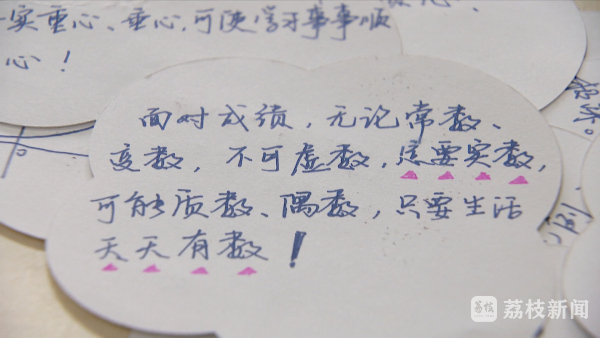 实重心、垂心,可使学习事事顺
心！
面对成绩，无论常数、
变数，不可虚数，需要实数，
可能质数、偶数，只要生活
天天有数！
荔枝新闻